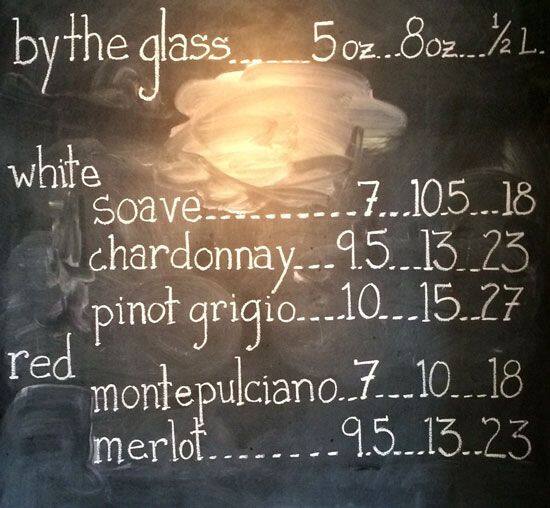 by the glass......5 oz...8 oz....½ L.
white
soave...........7...10.5...18
chardonnay...9.5...13..23
pinot grigio....10...15..27
red
montepulciano..7...10...18
merlot........9.5..13..23